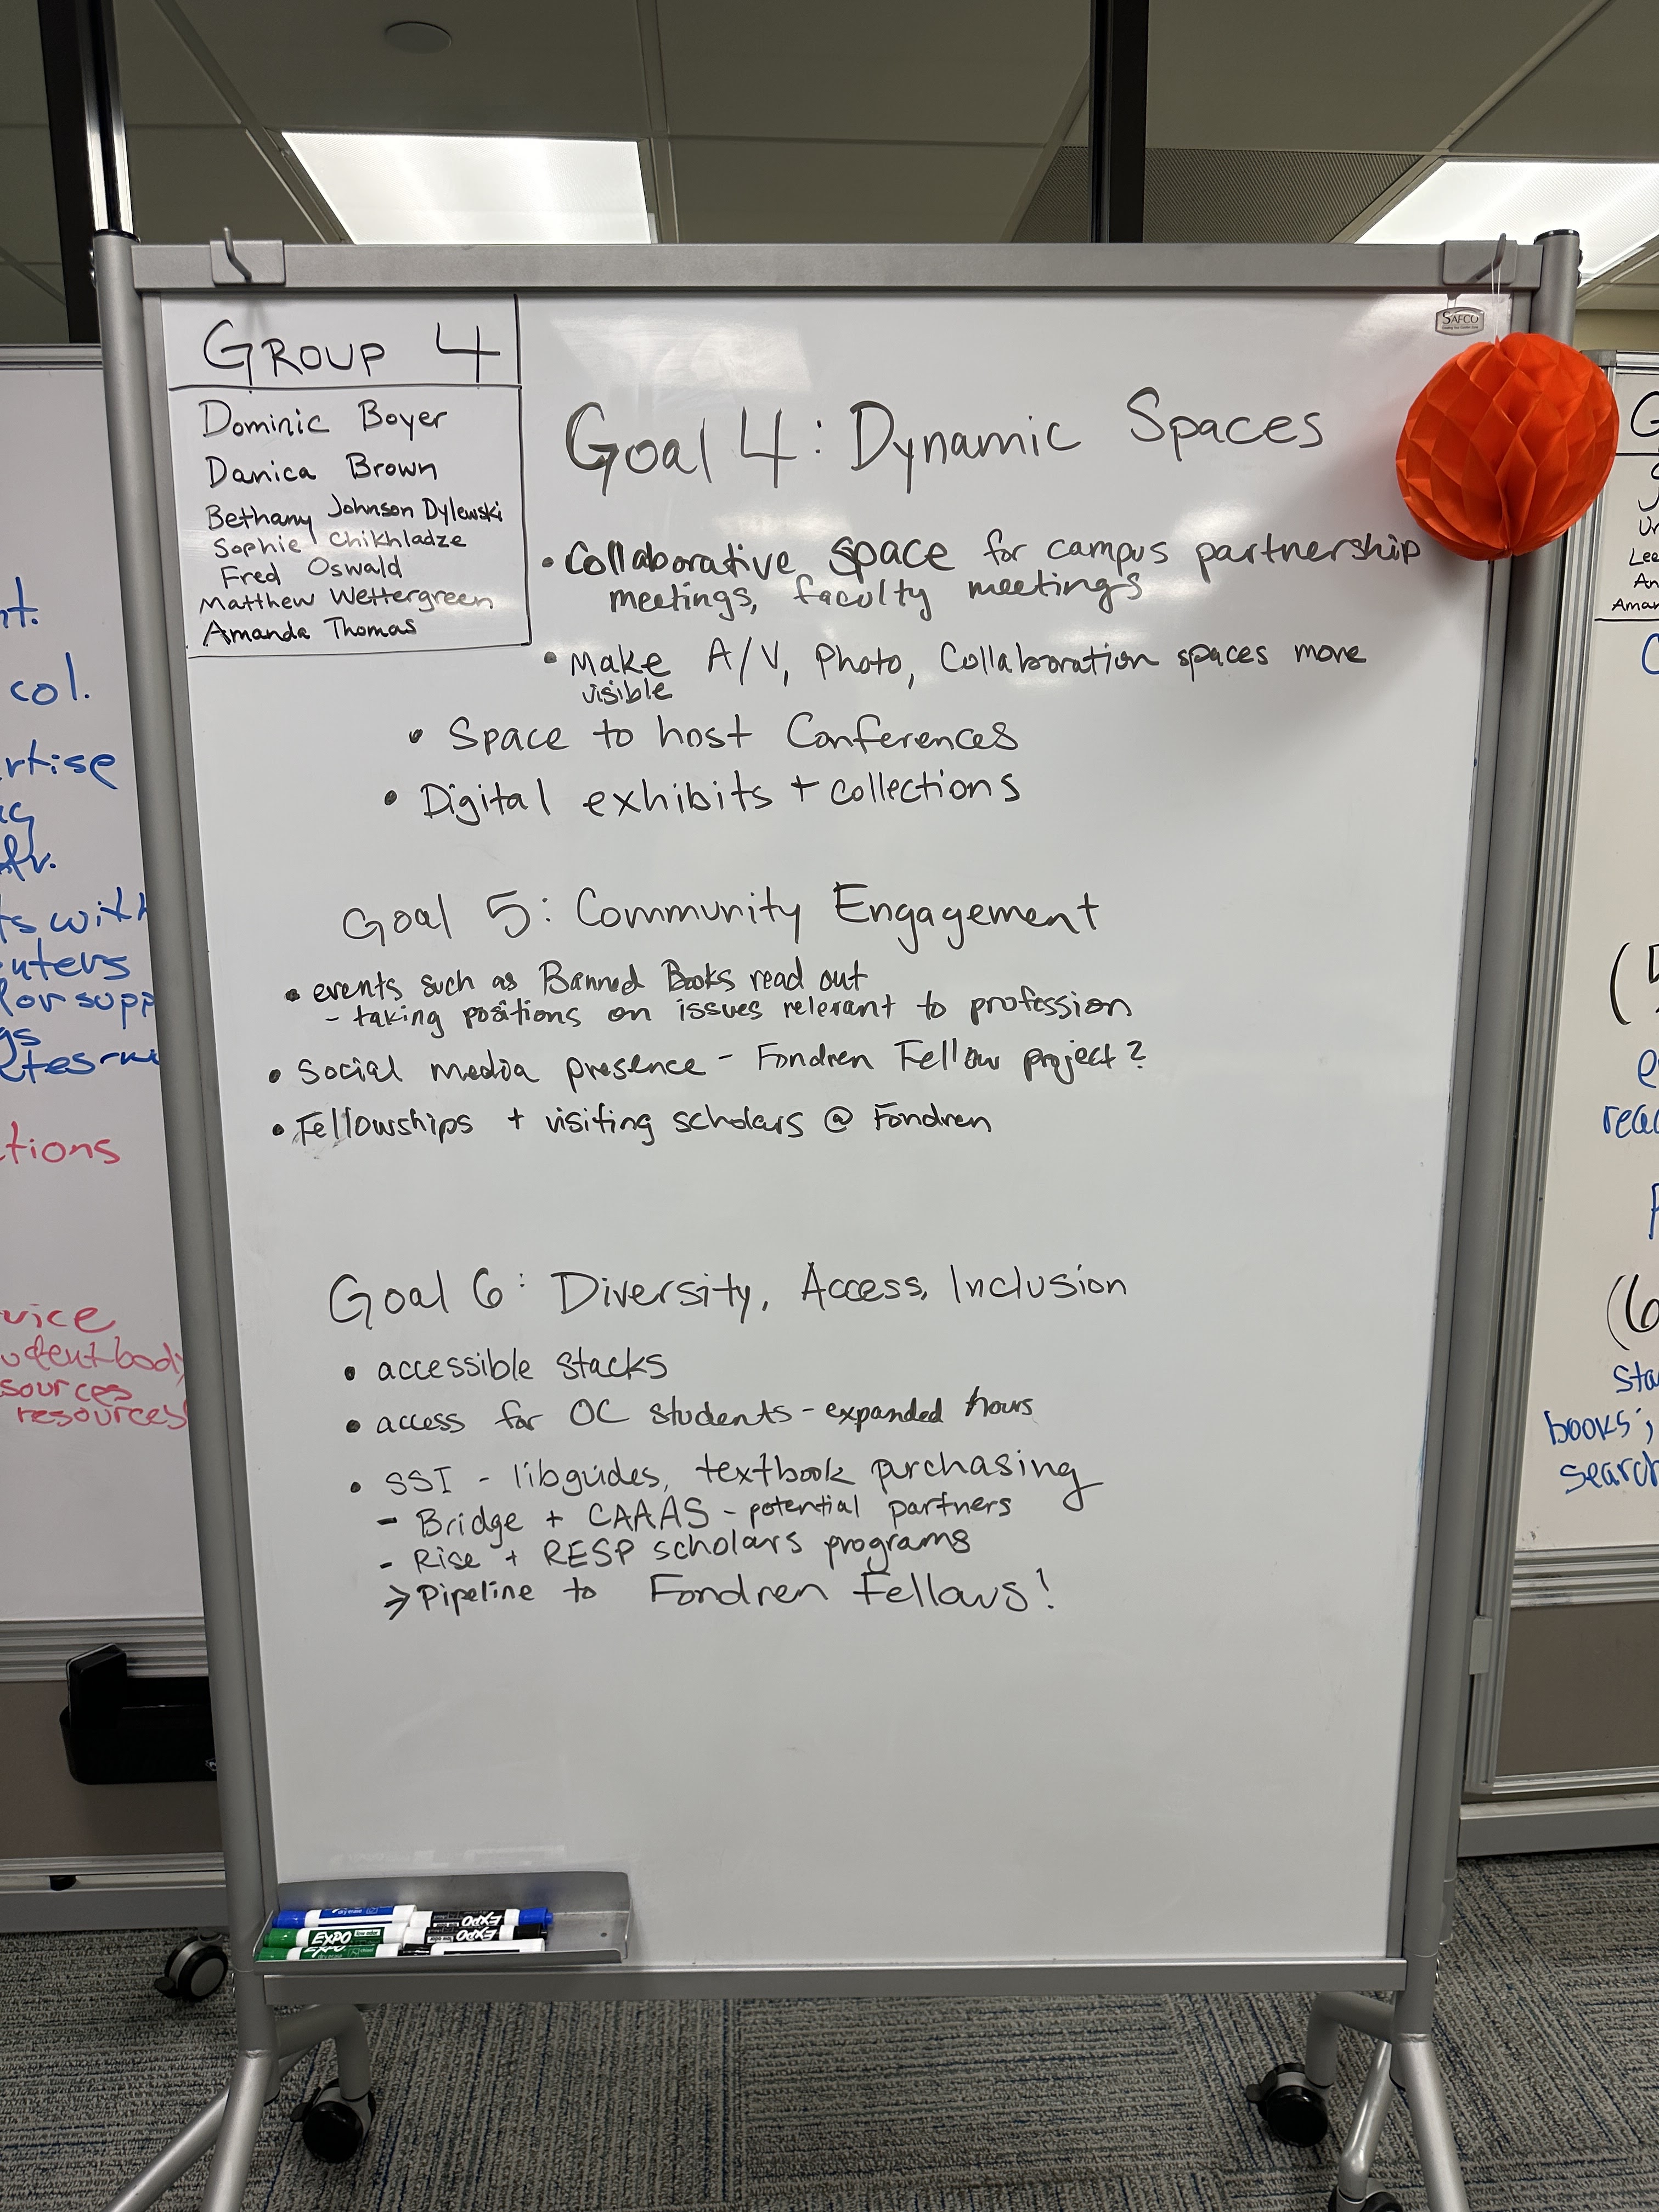 GROUP 4
Dominic Boyer
Danica Brown
Bethany Johnson Dylewski
Sophie Chikhladze
Fred Oswald
Matthew Wettergreen
Amanda Thomas
SAFCO
Goal 4: Dynamic Spaces
• Collaborative space for campus partnership
meetings, faculty meetings
• Make A/V, Photo, Collaboration spaces more
visible
• Space to host Conferences
• Digital exhibits + collections
Goal 5: Community Engagement
• events such as Banned Books read out
- taking positions on issues relevant to profession
• Social media presence - Fondren Fellow project?
• Fellowships + visiting scholars @ Fondren
Goal 6: Diversity, Access, Inclusion
• accessible stacks
• access for OC students - expanded hours
• SSI - libguides, textbook purchasing
- Bridge + CAAAS - potential partners
- Rise + RESP scholars programs
> Pipeline to Fondren Fellows!
EXPO
EXPO
EXPO low odor
EXPO
col.
tions
resources
books;